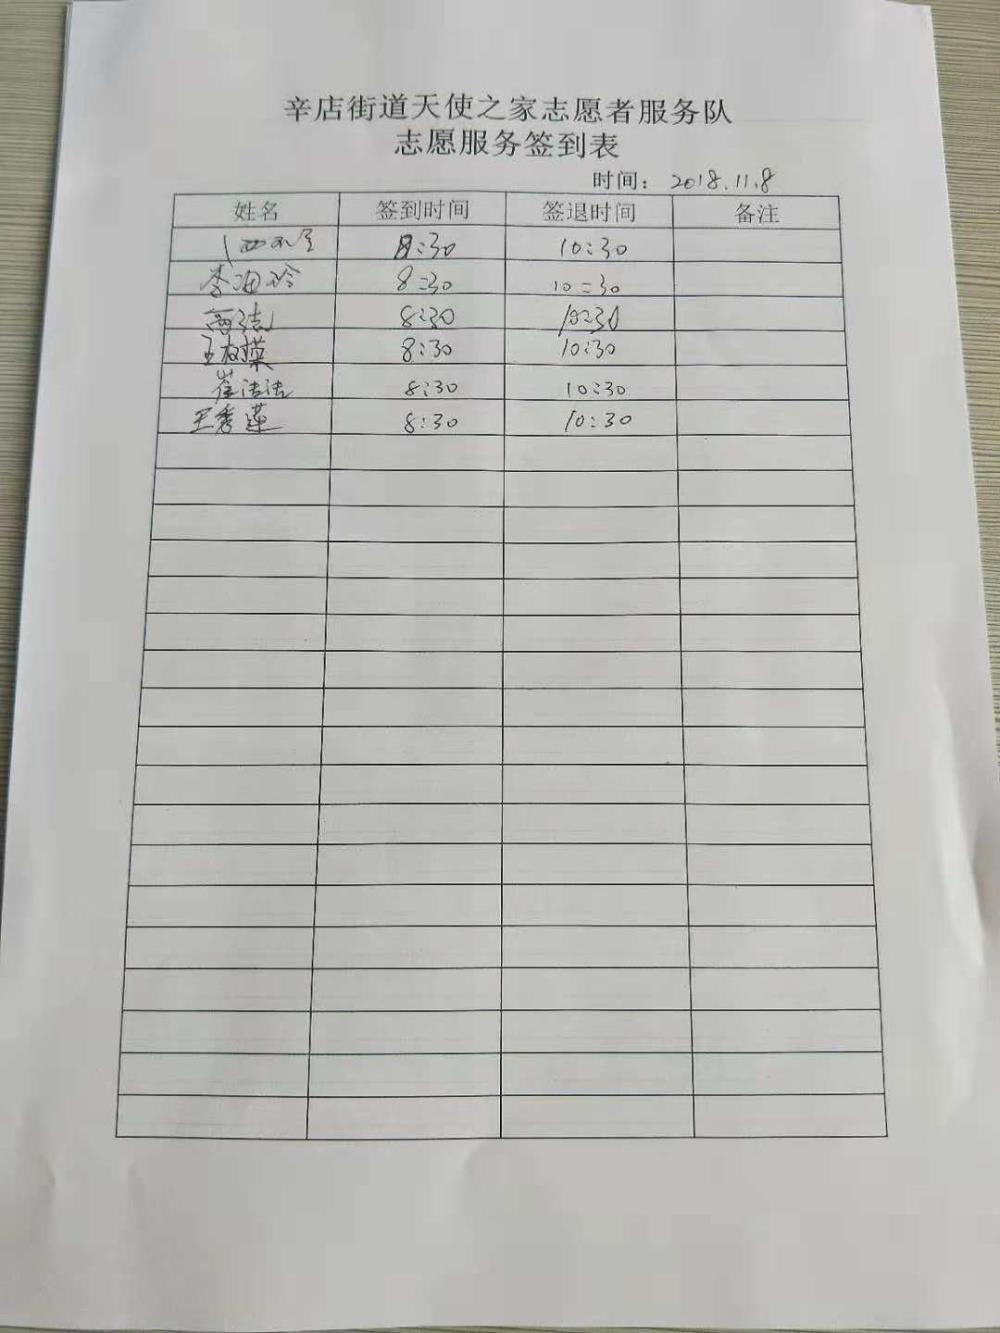 辛店街道天使之家志愿者服务队
志愿服务签到表
时间： 2018.11.8
姓名 签到时间 签退时间 备注
8:30 10:30
李海玲 8:30 10:30
8:30 10:30
王 8:30 10:30
崔洁洁 8:30 10:30
王秀莲 8:30 10:30